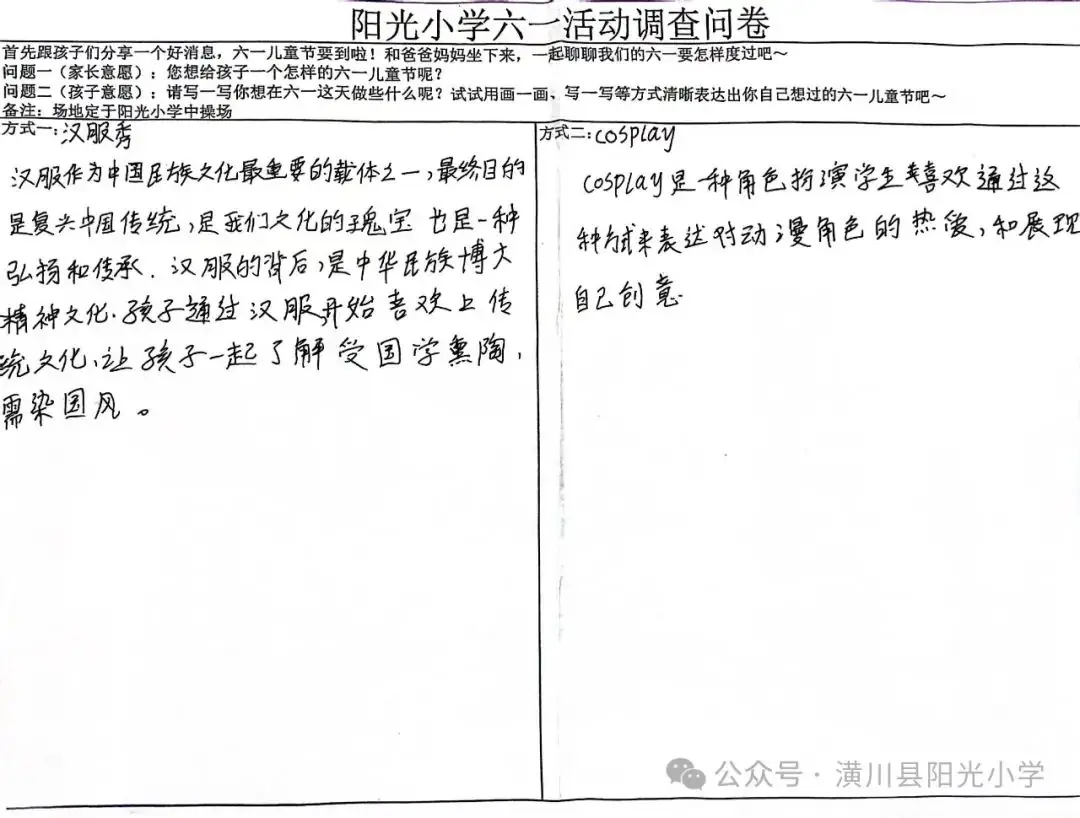 阳光小学六一活动调查问卷
首先跟孩子们分享一个好消息，六一儿童节要到啦！和爸爸妈妈坐下来，一起聊聊我们的六一要怎样度过吧～
问题一（家长意愿）：您想给孩子一个怎样的六一儿童节呢？
问题二（孩子意愿）：请写一写你想在六一这天做些什么呢？试试用画一画、写一写等方式清晰表达出你自己想过的六一儿童节吧～
备注：场地定于阳光小学中操场
方式一：汉服秀
汉服作为中国民族文化最重要的载体之一，最终目的
是复兴中国传统，是我们文化的瑰宝 也是一种
弘扬和传承．汉服的背后，是中华民族博大
精神文化．孩子通过汉服开始喜欢上传
统文化，让孩子一起了解受国学熏陶，
需染国风。
方式二：cosplay
cosplay是一种角色扮演学生喜欢通过这
种方式来表达对动漫角色的热爱，和展现
自己创意．
公众号·潢川县阳光小学